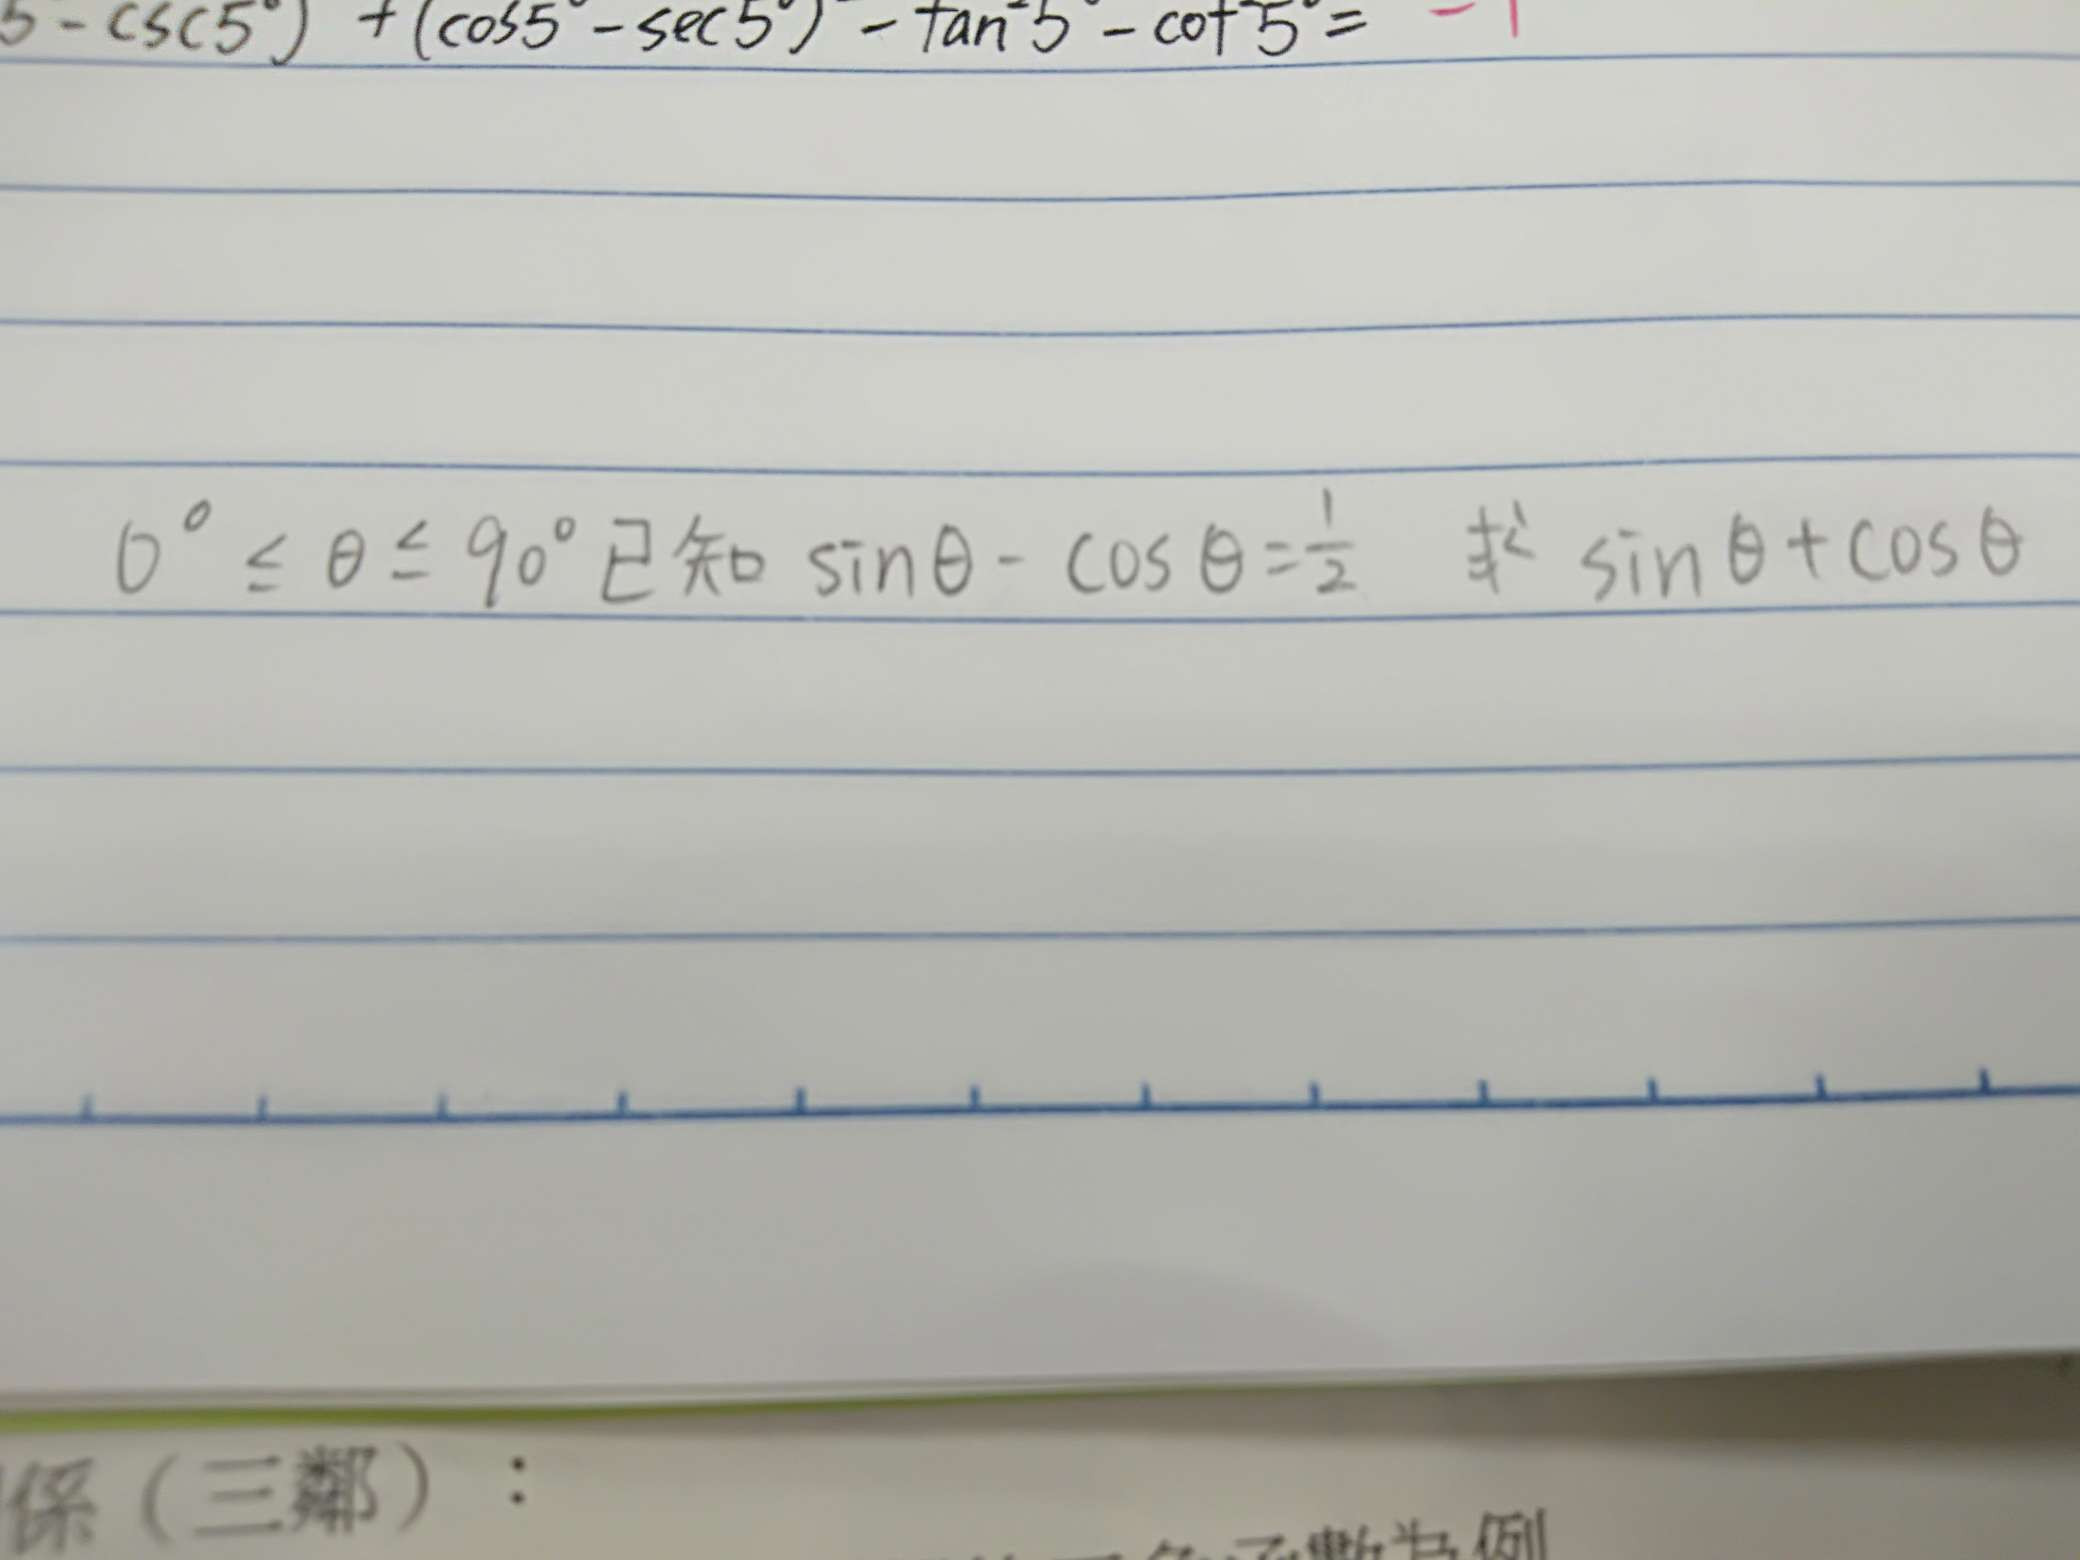 5° - csc5°) + (cos5° - sec5°) - tan²5° - cot²5° = -1
0° ≤ θ ≤ 90° 已知 sinθ - cosθ = 1/2 求 sinθ + cosθ
係(三鄰):
函數為例